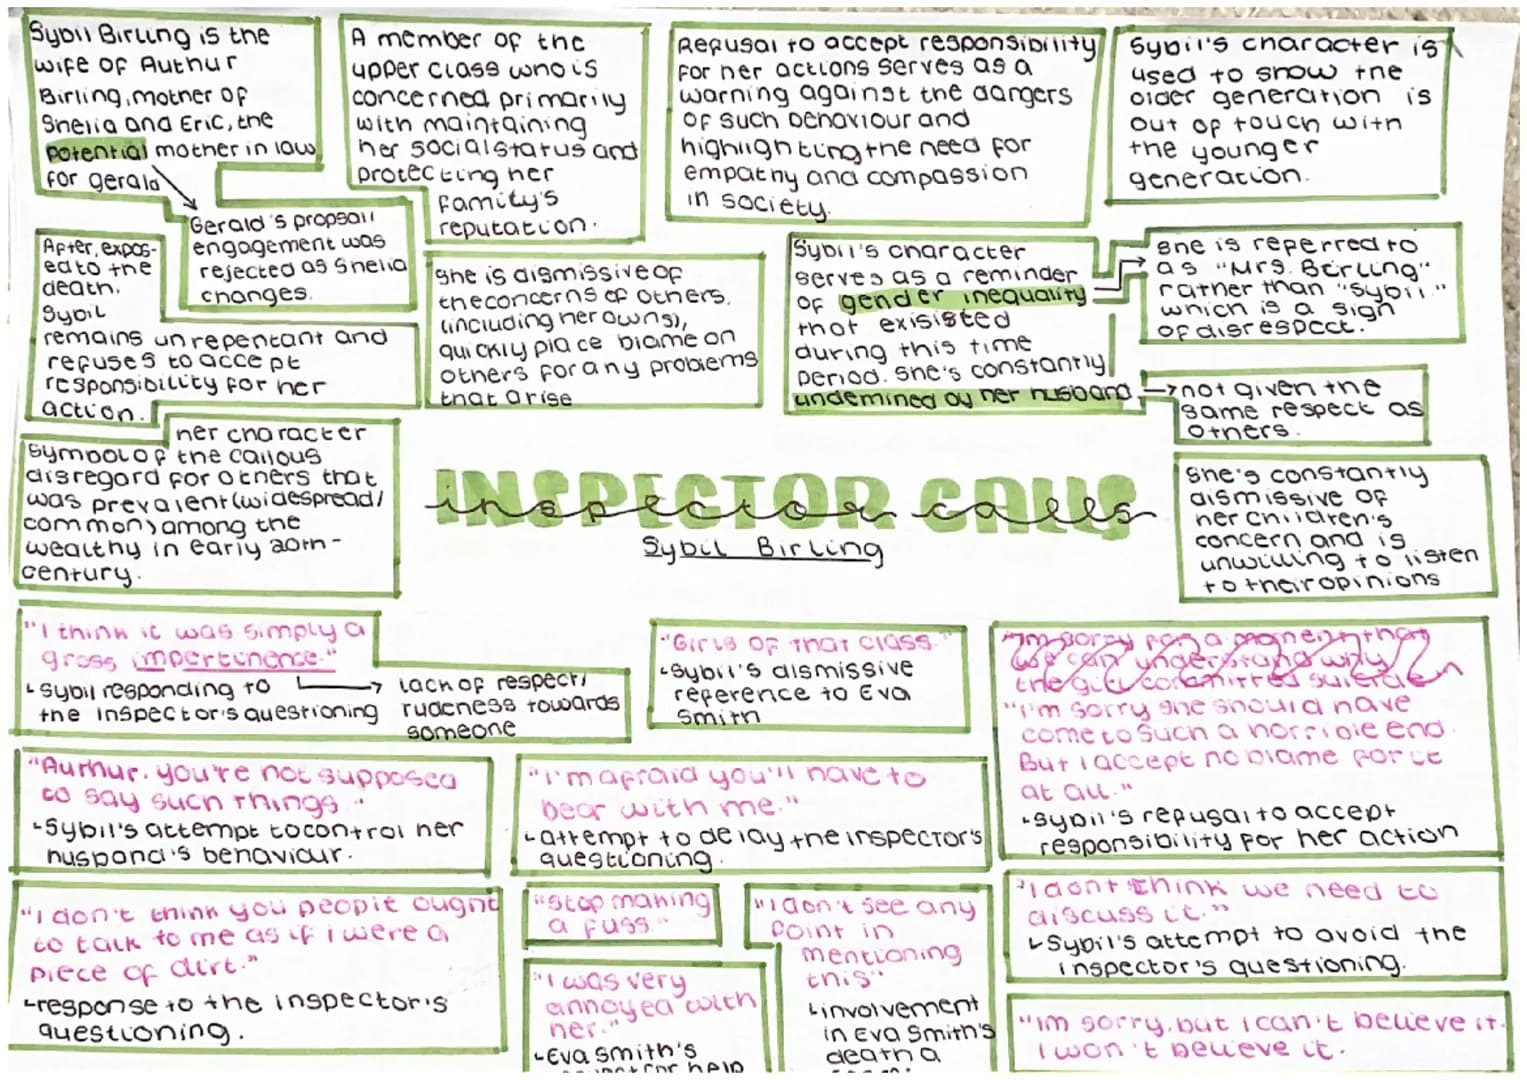 Sybil Birling is the
wife of Authur
Birling, mother of
Shelia and Eric, the
potential mother in law
for gerald
Gerald's propsall
engagement was
rejected as Shelia
changes.
A member of the
upper class who is
concerned primarily
with maintaining
her social status and
protecting her
family's
reputation.
Refusal to accept responsibility
for her actions serves as a
warning against the dangers
of such behaviour and
highlighting the need for
empathy and compassion
in society.
Sybil's character is
used to show the
older generation is
out of touch with
the younger
generation.
After, expos-
ed to the
death,
Sybil
remains unrepentant and
refuses to accept
responsibility for her
action.
She is dismissive of
the concerns of others,
(including her owns),
quickly place blame on
others for any problems
that arise
Sybil's character
serves as a reminder
of gender inequality
that exisisted
during this time
period. She's constantly
undemined by her husband
She is referred to
as "Mrs. Berling"
rather than "Sybil."
which is a sign
of disrespect.
not given the
same respect as
others.
her character
symbol of the callous
disregard for others that
was prevalent (widespread/
common) among the
wealthy in early 20th-
century.
INSPECTOR CALLS
inspector calls
Sybil Birling
She's constantly
dismissive of
her children's
concern and is
unwilling to listen
to their opinions
"I think it was simply a
gross impertinence."
Sybil responding to
the inspector's questioning
lack of respect/
rudeness towards
someone
"Girls of that class."
Sybil's dismissive
reference to Eva
Smith
"I'm sorry for a moment that
we can understand why
the girl committed suicide
"I'm sorry she should have
come to such a horrible end.
But I accept no blame for it
at all."
Sybil's refusal to accept
responsibility for her action
"Authur, you're not supposed
to say such things."
Sybil's attempt to control her
husband's behaviour.
"I'm afraid you'll have to
bear with me."
attempt to delay the inspector's
questioning.
"I don't think you people ought
to talk to me as if i were a
piece of dirt."
response to the inspector's
questioning.
"Stop making
a fuss."
"I was very
annoyed with
her."
Eva Smith's
for help
"I don't see any
point in
mentioning
this"
involvement
in Eva Smith's
death a
"I dont think we need to
discuss it."
Sybil's attempt to avoid the
inspector's questioning.
"Im sorry, but i can't believe it.
I won't believe it.